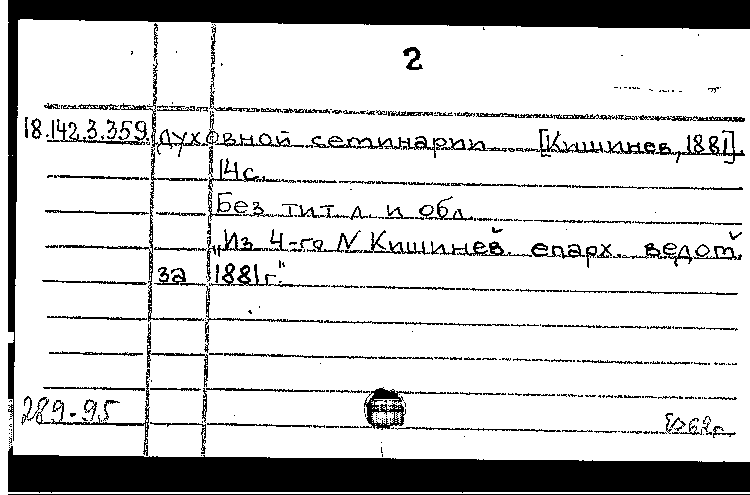 2
18.142.3.359. духовной семинарии [Кишинев, 1881].
14 с.
Без тит. л. и обл.
„Из 4-го N Кишинев. епарх. ведом.
за 1881 г."
289-95
62 г.